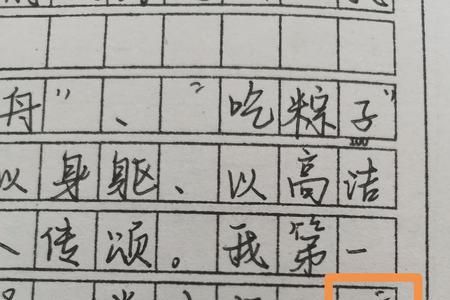 舟”、“吃粽子”
100
以身躯、以高洁
传颂。我第一